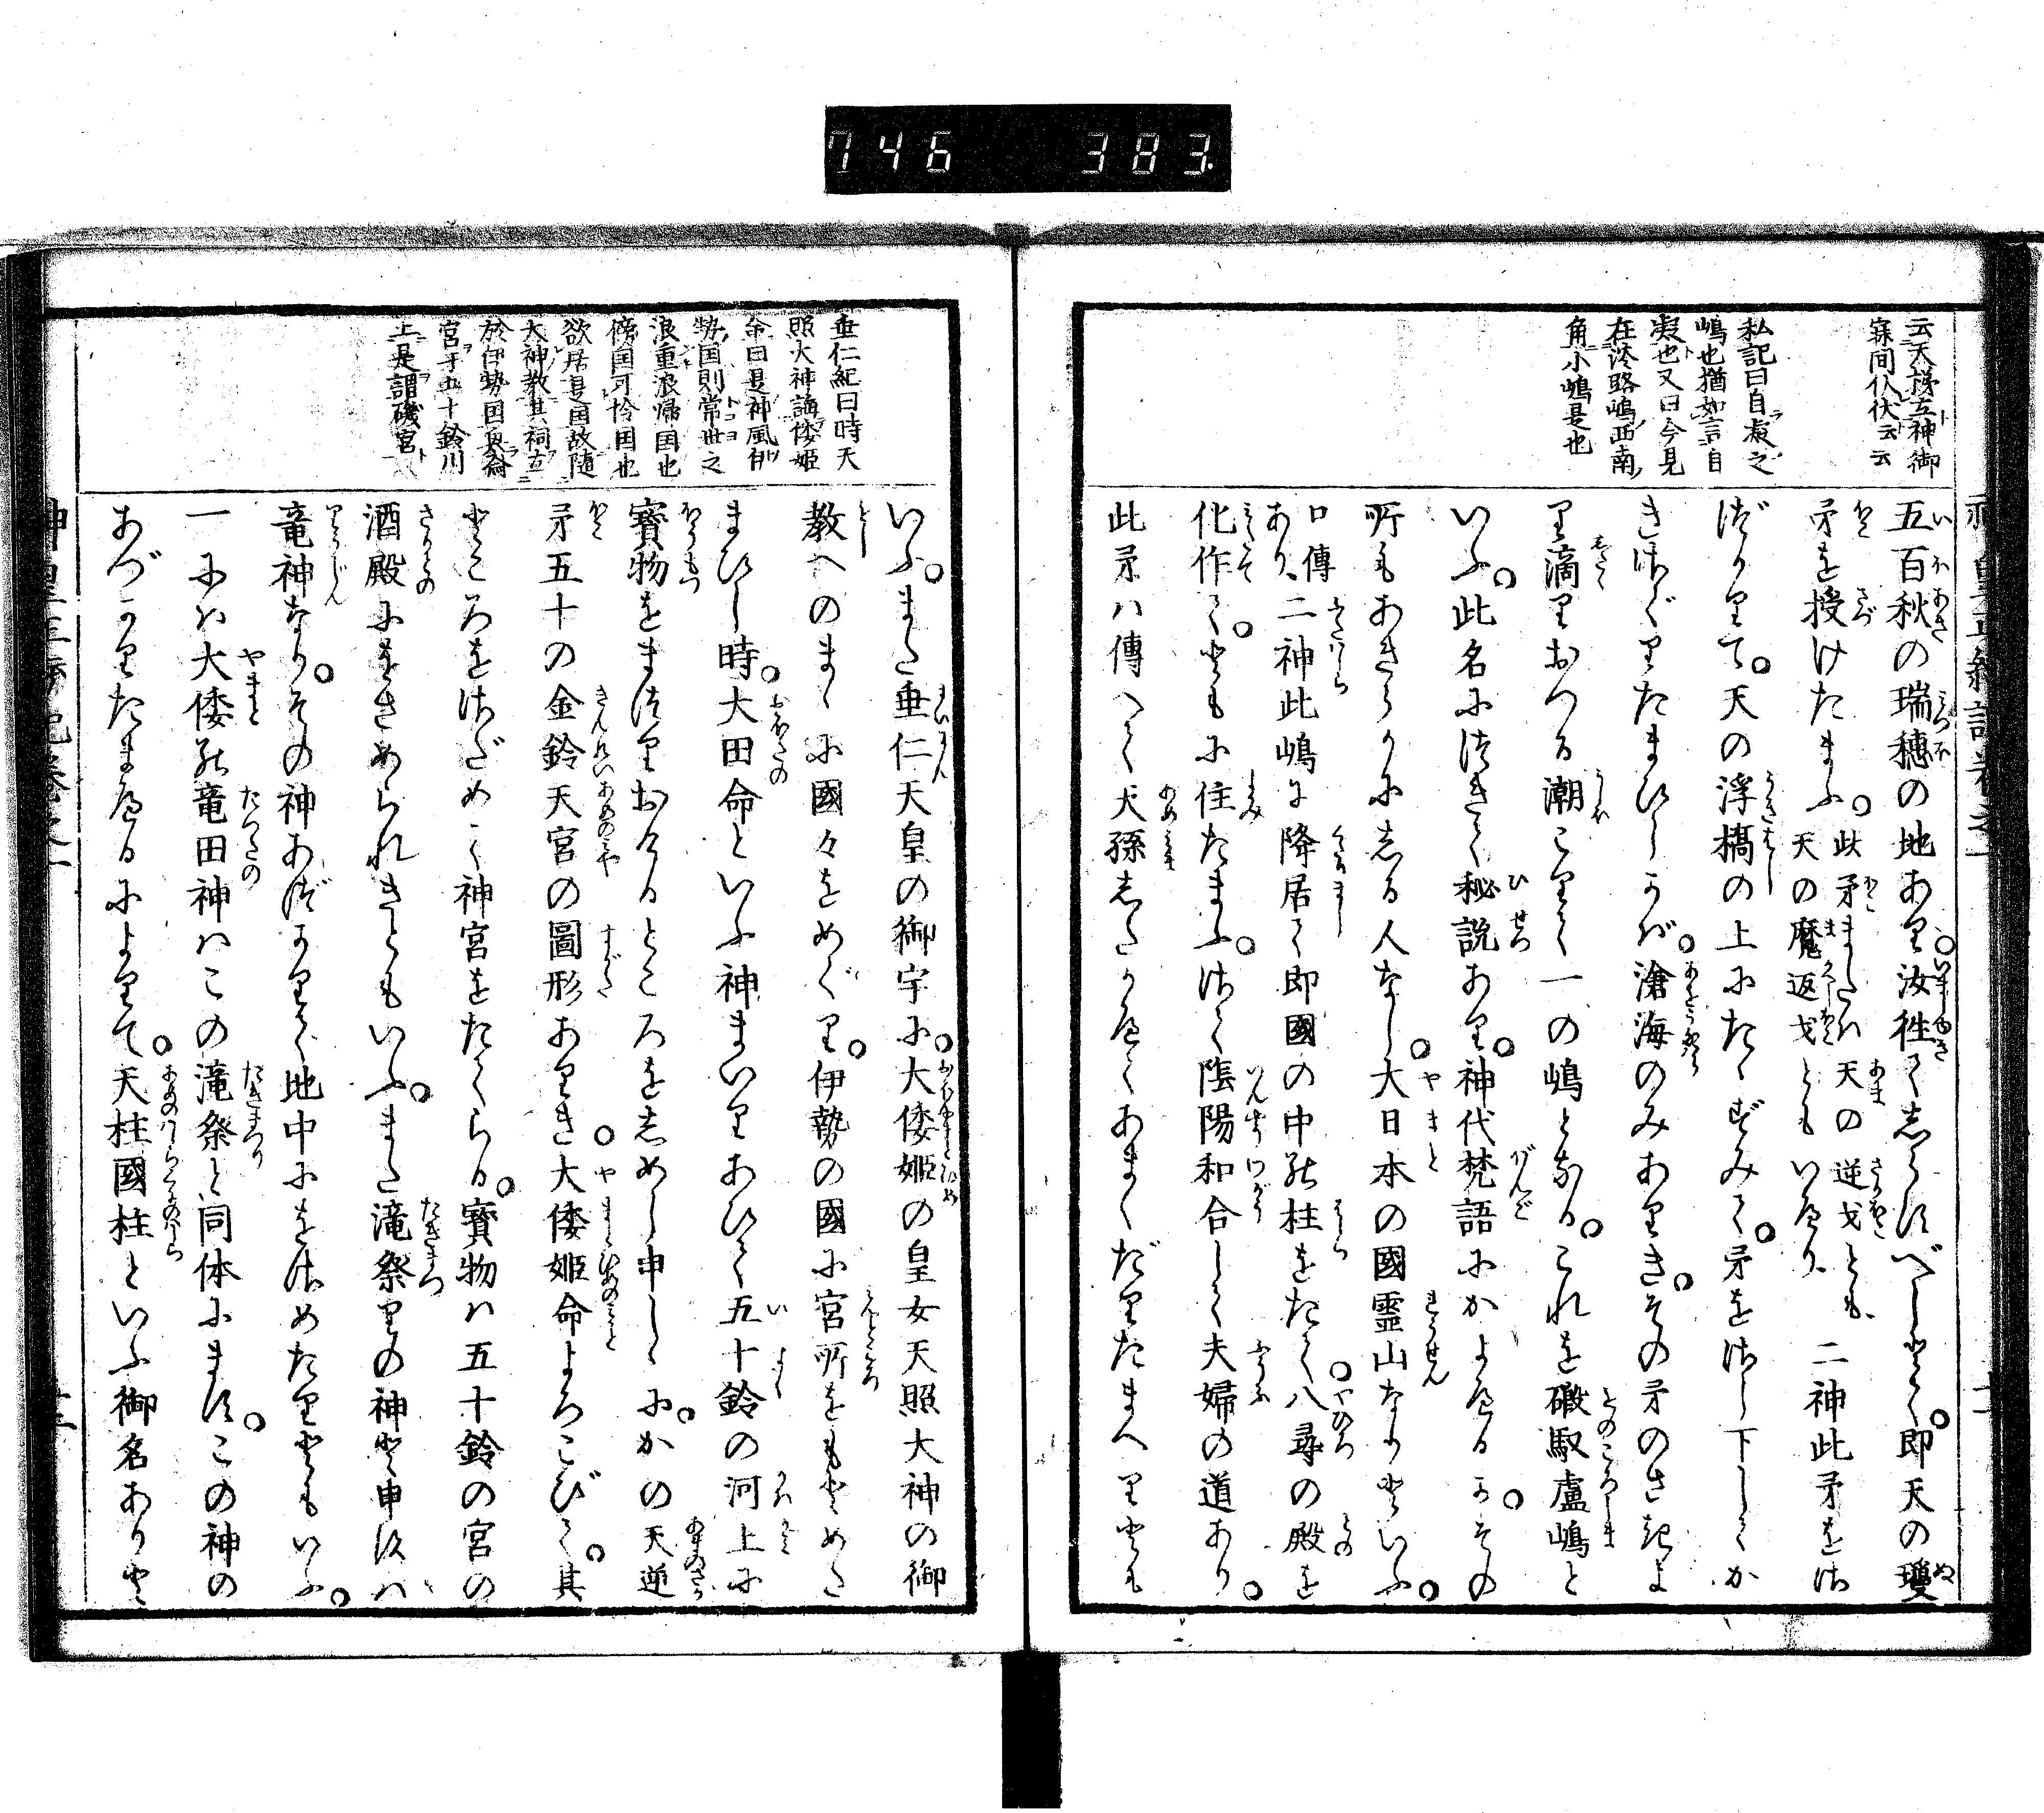 746 383.
云天梯立神御
寐間仆伏云云
私記曰自凝之
嶋也猶如言自
凝也又曰今見
在淡路嶋西南
角小嶋是也
五百秋の瑞穂の地あり。汝往てしらすべしとて。即天の瓊
矛を授けたまふ。此矛または天の逆戈とも、天の魔返戈ともいへり 二神此矛をさ
づかりて。天の浮橋の上にたゝずみて。矛をさし下してか
きさぐりたまひしかば。滄海のみありき。その矛のさきよ
り滴りおつる潮こりて一の嶋となる。これを磤馭盧嶋と
いふ。此名につきて秘説あり。神代梵語にかよへるか。その
所もあきらかにしる人なし。大日本の國霊山なりといふ。
口傳あり、二神此嶋に降居て即國の中の柱をたて。八尋の殿を
化作て。ともに住たまふ。さて陰陽和合して夫婦の道あり。
此矛ハ傳へて天孫したかへてあまくだりたまへりとも
いふ。また垂仁天皇の御宇に。大倭姫の皇女天照大神の御
教へのまゝに國々をめぐり。伊勢の國に宮所をもとめた
まひし時。大田命といふ神まいりあひて五十鈴の河上に
寳物をまつりおけるところをしめし申しゝに。かの天逆
矛五十の金鈴天宮の圖形ありき。大倭姫命よろこびて。其
ところをさだめて神宮をたてらる。寳物ハ五十鈴の宮の
酒殿にをさめられきともいふ。また滝祭りの神と申すハ
竜神なり。その神あづかりて地中にをさめたりともいふ。
一にハ大倭の竜田神ハこの滝祭と同体にます。この神の
あづかりたまへるによりて。天柱國柱といふ御名ありと
垂仁紀曰時天
照大神誨倭姫
命曰是神風伊
勢国則常世之
浪重浪帰国也
傍国可怜国也
欲居是国故随
大神教其祠立
於伊勢国因斎
宮于五十鈴川
上是謂磯宮